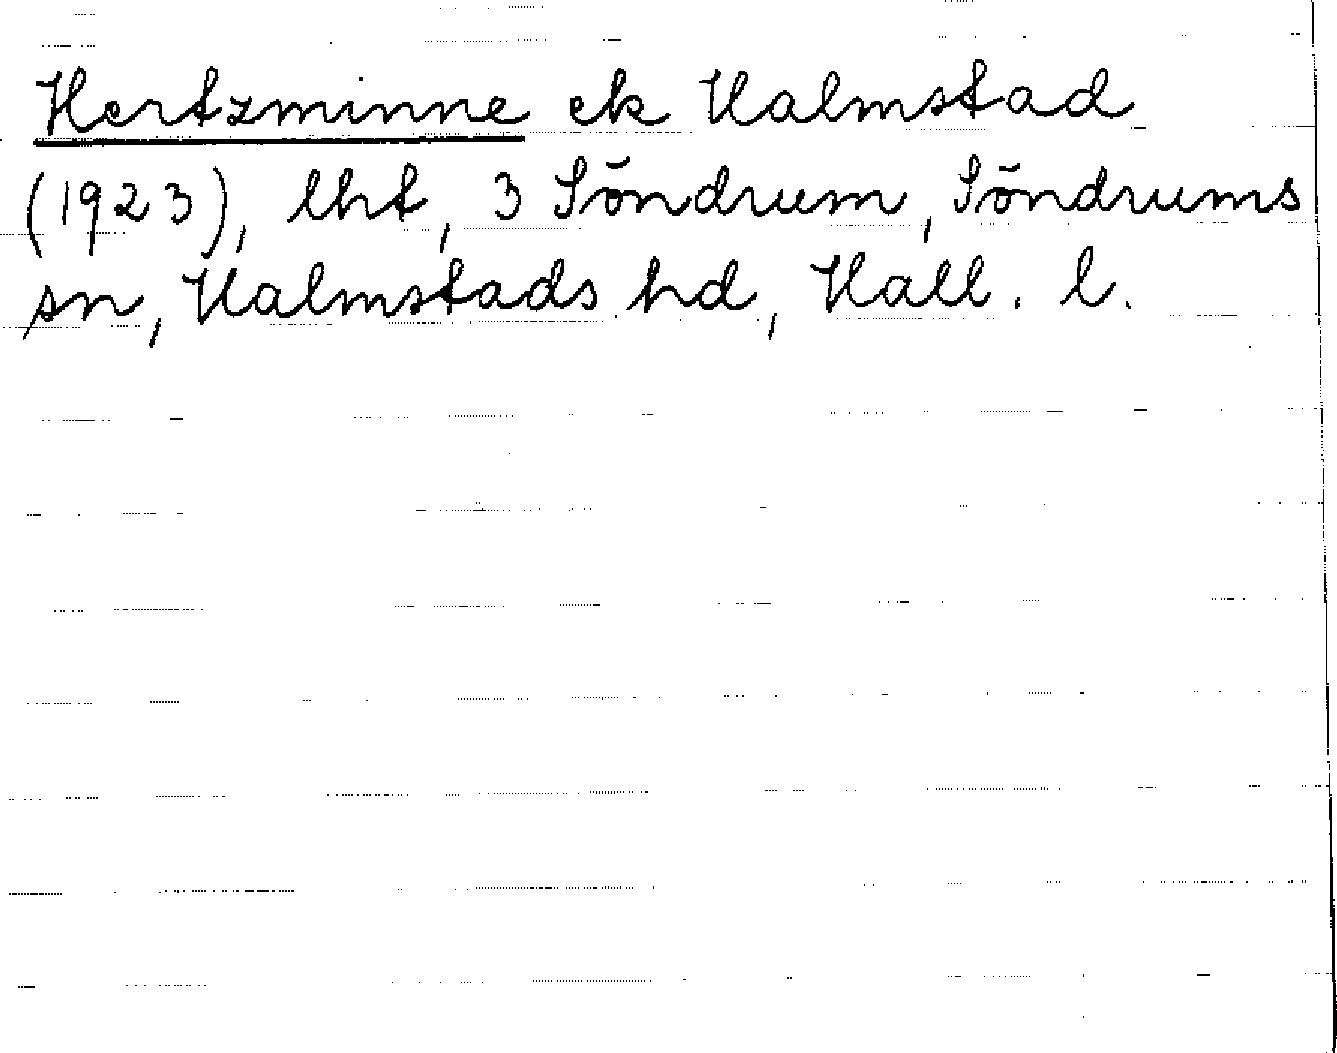 Hertzminne ek Halmstad
(1923), lht, 3 Söndrum, Söndrums
sn, Halmstads hd, Hall. l.